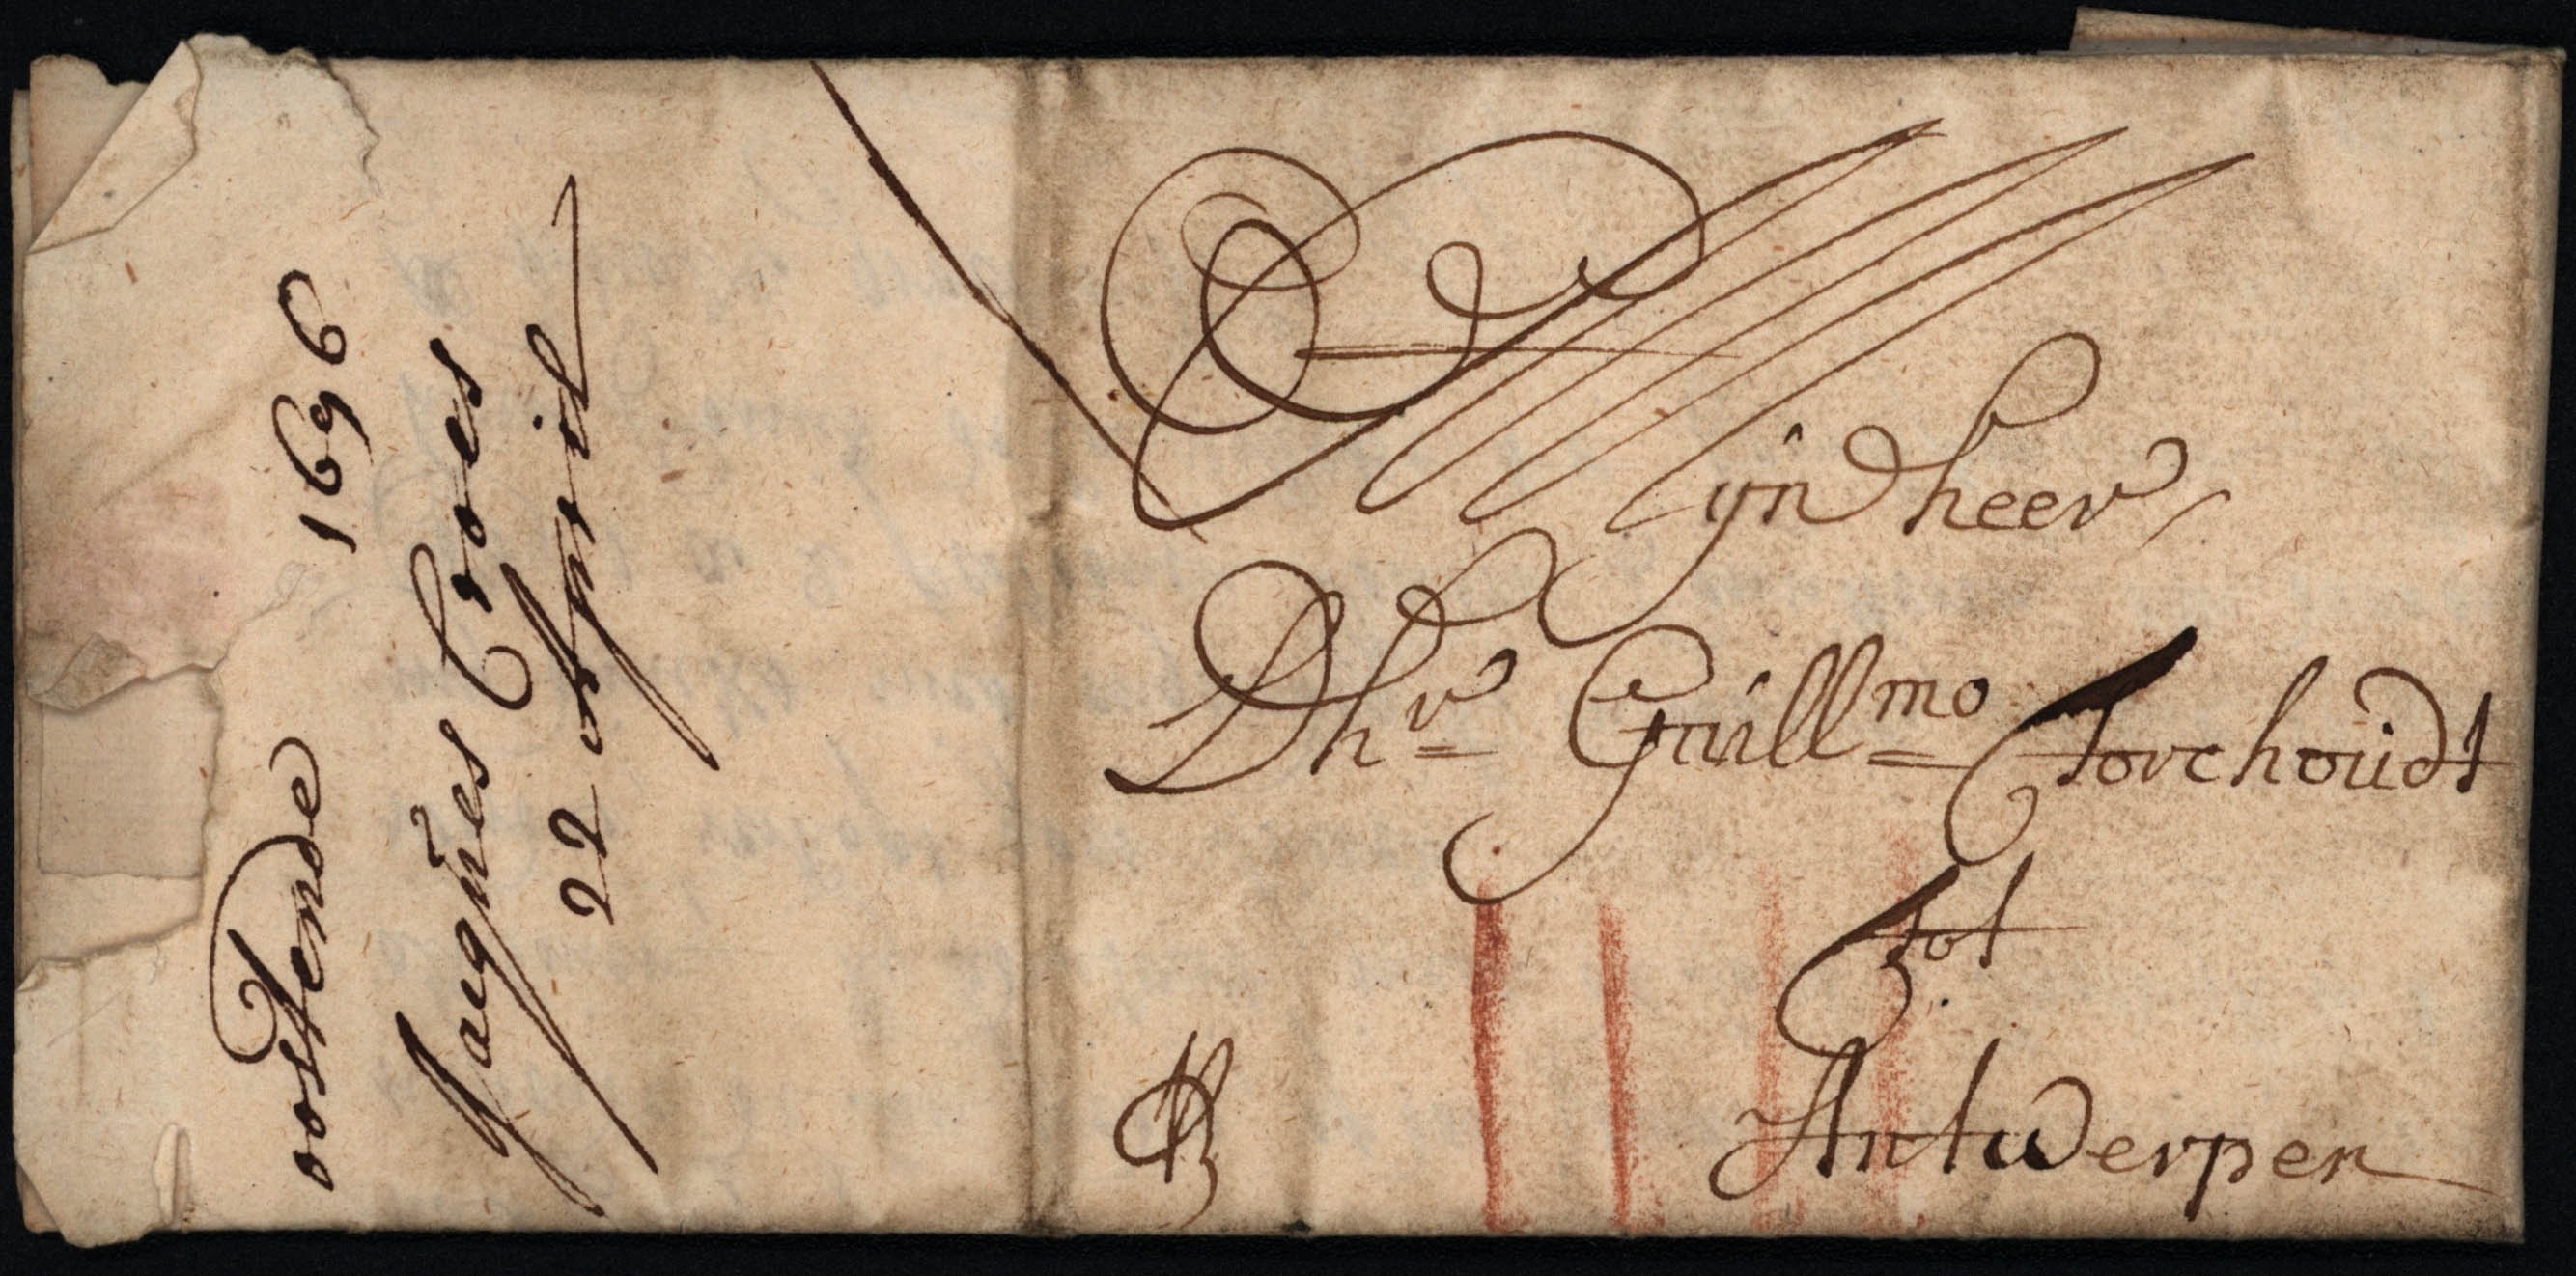 oostende 1696
Jaeques Coos
22 April
Mijn heer
Dhr Guillmo Forchoudt
tot
Antwerpen